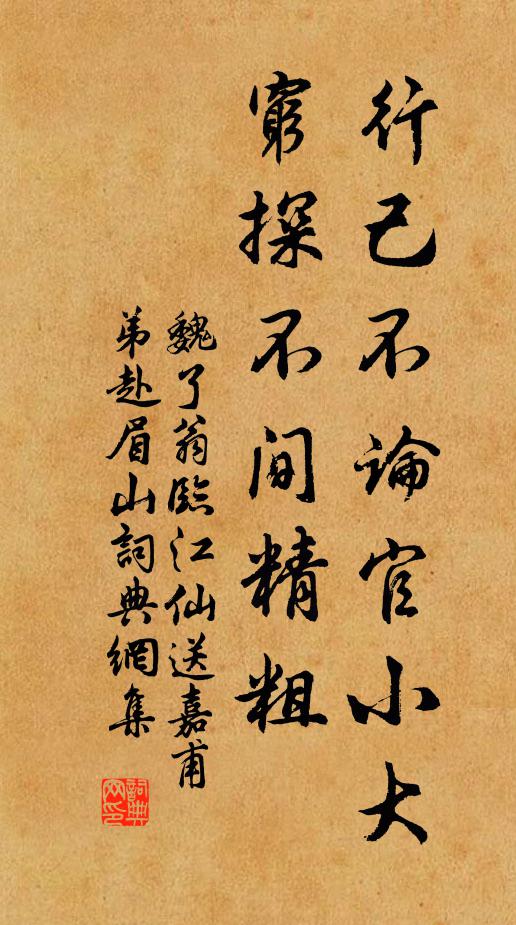 行己不論官小大
窮探不間精粗
魏了翁臨江仙送嘉甫
弟赴眉山詞典網集
詞典
网印